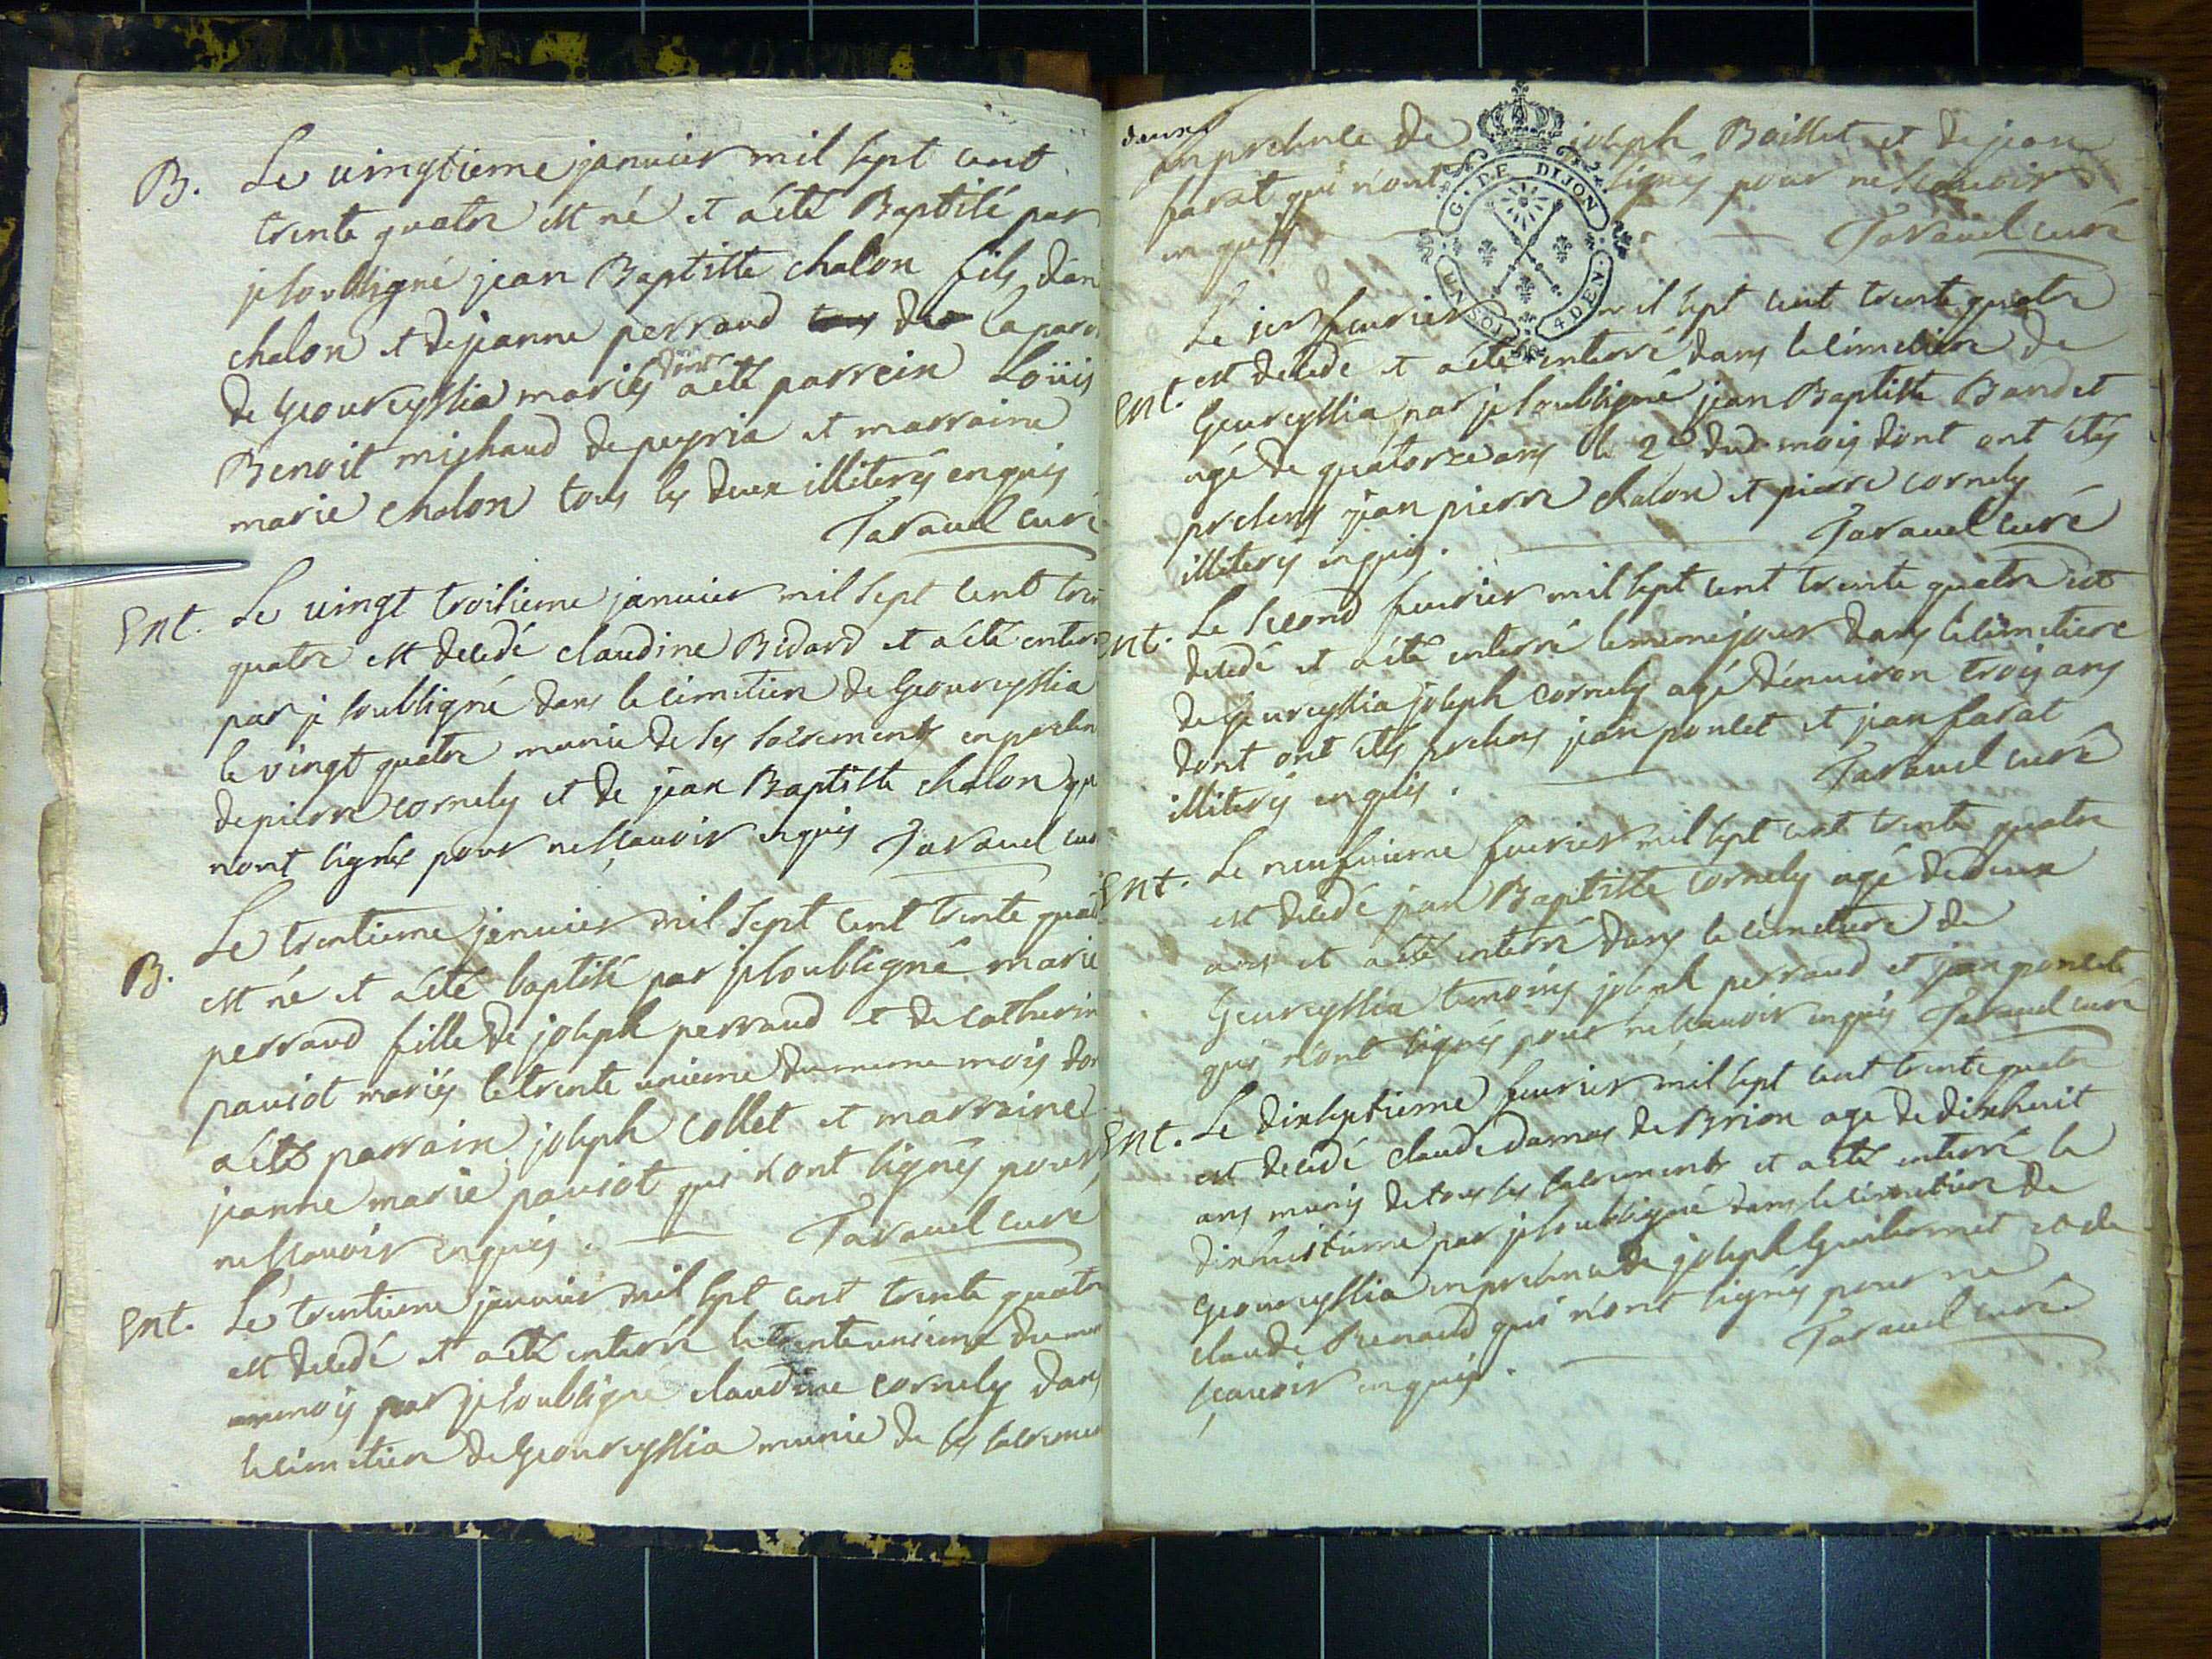 B. Le vingtieme janvier mil sept cent
trente quatre est né et a été Baptisé par
je soussigné jean Baptiste chalon fils dan
chalon et de jeanne perraud la paro
de Geourcyssia mariés dont a été parrein Loüis
Benoit michaud de peyria et marraine
marie chalon tous les deux illiterés enquis
Taravel curé
Ent. Le vingt troisieme janvier mil sept cent tren
quatre est decedé claudine Bidard et a été enterr
par je soussigné dans le cimetiere de Geourcyssia
le vingt quatre munie de ses sacrements en presen
de pierre cornely et de jean Baptiste chalon qu
nont signés pour ne sçavoir enquis Taravel cur
B. Le trentieme janvier mil sept cent trente quat
est né et a été baptisé par je soussigné marie
perraud fille de joseph perraud et de catherin
paviot mariés le trente unieme du meme mois don
a été parrain joseph collet et marraine
jeanne marie paviot qui n'ont signés pour
ne sçavoir enquis. Taravel curé
Ent. Le trentieme janvier mil sept cent trente quatre
est decedé et a été enterré le trente unieme du me
mois par je soussigné claudine cornely dans
le cimetiere de Geourcyssia munie de ses sacremen
en presence de joseph Boillet et de jean
farat qui n'ont signés pour ne sçavoir
enquis Taravel curé
G. DE DIJON
4 DEN
Le 1er fevrier mil sept cent trente quatre
Ent. est decedé et a été enterré dans le cimetiere de
Geurcyssia par je soussigné jean Baptiste Bandet
agé de quatorze ans le 2e dud mois dont ont étés
presens jean pierre chalon et pierre cornely
illiterés enquis. Taravel curé
Ent. Le second fevrier mil sept cent trente quatre est
decedé et a été enterré le meme jour dans le cimetiere
de Geurcyssia joseph cornely agé d'environ trois ans
dont ont étés presens jean ponlet et jean farat
illiterés enquis. Taravel curé
Ent. Le neufvieme fevrier mil sept cent trente quatre
est decedé jean Baptiste cornely agé de deux
ans et a été enterré dans le cimetiere de
Geurcyssia temoins joseph perraud et jean ponlet
qui n'ont signés pour ne sçavoir enquis Taravel curé
Ent. Le dixseptieme fevrier mil sept cent trente quatre
est decedé claude damas de Brion agé de dixhuit
ans munis de tous les sacrements et a été enterré le
dixhuitieme par je soussigné dans le cimetiere de
Geourcyssia en presence de joseph Guillermet et de
claude Renaud qui n'ont signés pour ne
sçavoir enquis. Taravel curé